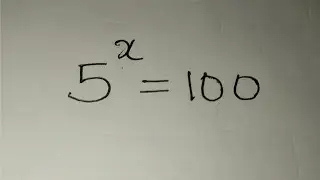 5ˣ = 100